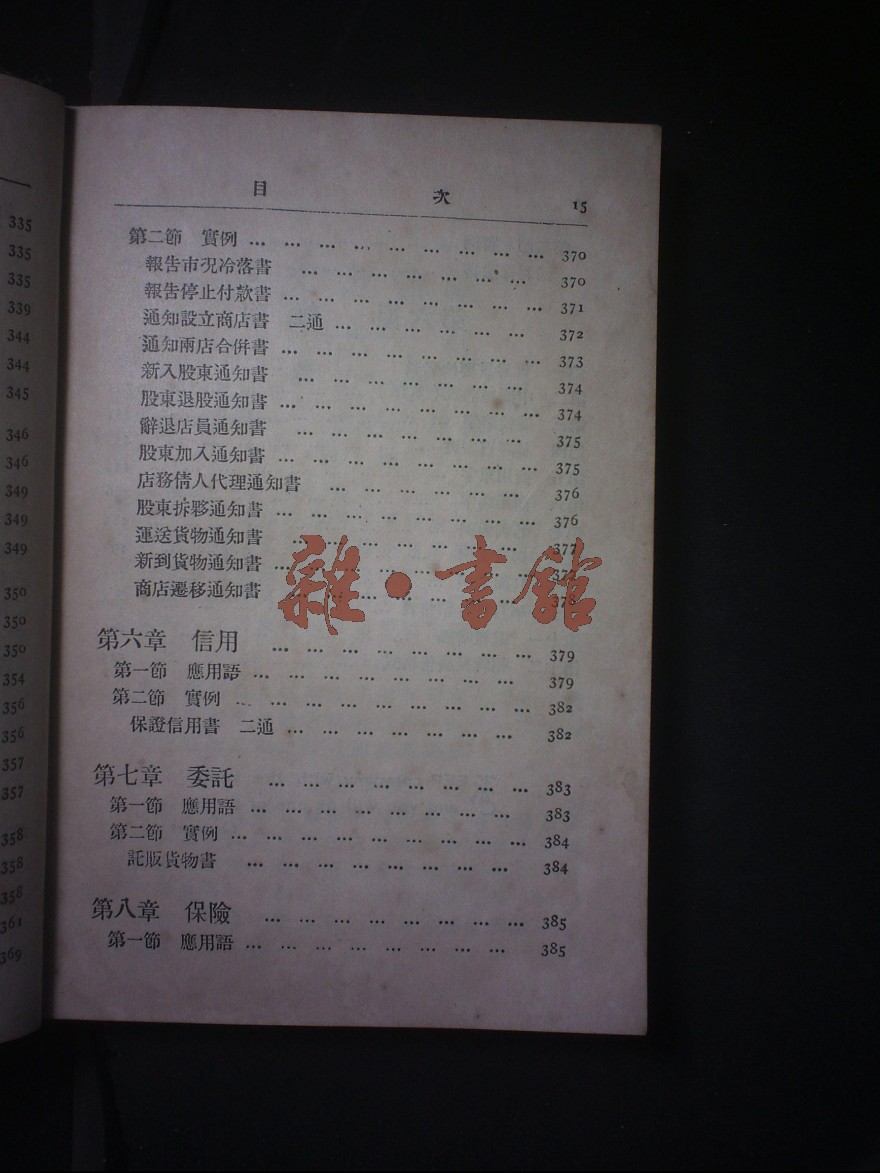 335
335
335
339
344
344
345
346
346
349
349
349
350
350
350
354
356
356
357
357
358
358
358
361
369
目 次 15
第二節 實例 … … … … … … … … … 370
報告市況冷落書 … … … … … … … 370
報告停止付款書 … … … … … … … … 371
通知設立商店書 二通 … … … … … … 372
通知兩店合併書 … … … … … … … … 373
新入股東通知書 … … … … … … … 374
股東退股通知書 … … … … … … … … 374
辭退店員通知書 … … … … … … … 375
股東加入通知書 … … … … … … … … 375
店務倩人代理通知書 … … … … … … 376
股東拆夥通知書 … … … … … … … … 376
運送貨物通知書 … … … … … … … 377
新到貨物通知書 … … … … … … … …
商店遷移通知書 … … … … … … …
雜·書館
第六章 信用 … … … … … … … … 379
第一節 應用語 … … … … … … … … 379
第二節 實例 … … … … … … … … … 382
保證信用書 二通 … … … … … … … 382
第七章 委託 … … … … … … … … 383
第一節 應用語 … … … … … … … … 383
第二節 實例 … … … … … … … … … 384
託販貨物書 … … … … … … … … 384
第八章 保險 … … … … … … … … 385
第一節 應用語 … … … … … … … … 385